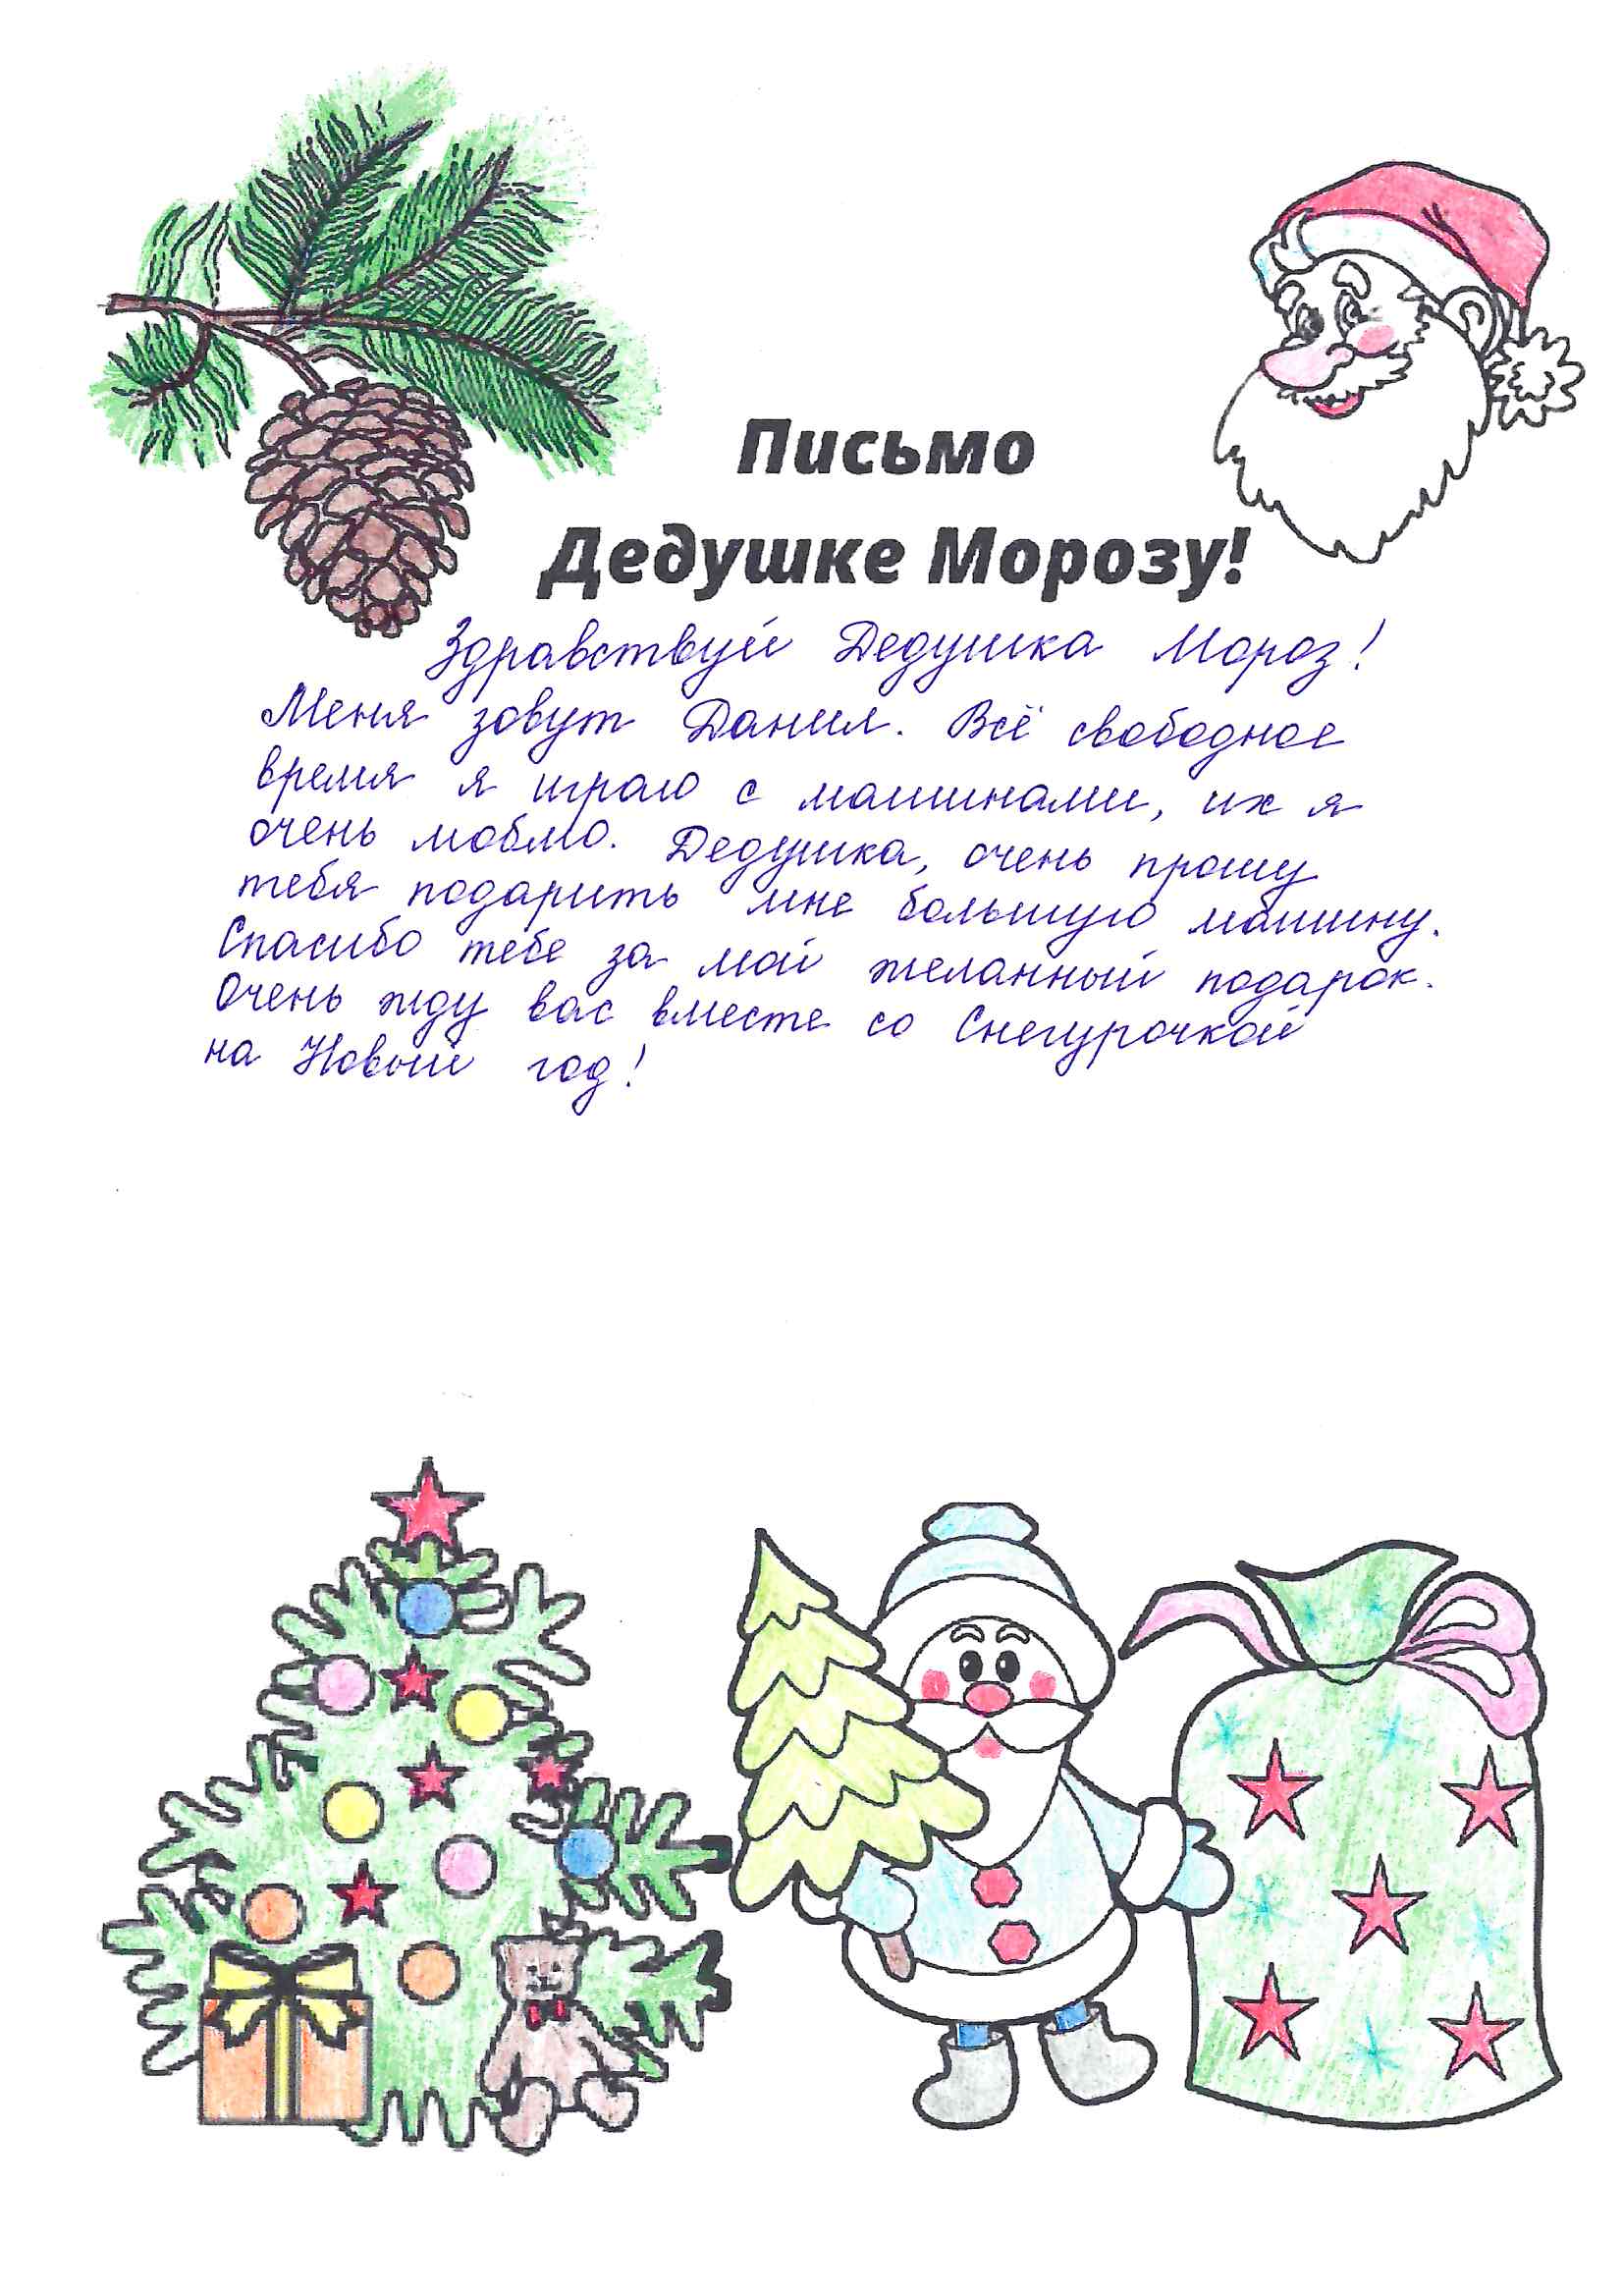 Письмо
Дедушке Морозу!
Здравствуй Дедушка Мороз!
Меня зовут Данил. Всё свободное
время я играю с машинами, их я
очень люблю. Дедушка, очень прошу
тебя подарить мне большую машину.
Спасибо тебе за мой желанный подарок.
Очень жду вас вместе со Снегурочкой
на Новый год!